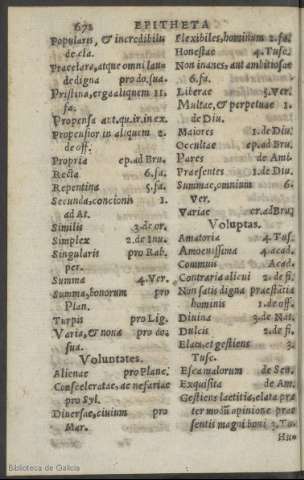 672 EPITHETA
Popularis, & incredibilis
de cla.
Præclara, atque omni laude
de digna pro do. sua.
Pristina, erga aliquem 11.
fa.
Propensa ad Q. fr.
Propensior in aliquem 2.
de off.
Propria ep. ad Bru.
Recta 6. fa.
Repentina 5. fa.
Secunda, concionis 1.
ad At.
Similis 3. de or.
Simplex 2. de Inu.
Singularis pro Rab.
per.
Summa 4. Ver.
Summa, bonorum pro
Plan.
Turpis pro Lig.
Varia, & noua pro do.
sua.
Voluntates.
Alienae pro Planc.
Consceleratae, ac nefariae
pro Syl.
Diuersae, ciuium pro
Mar.
Flexibiles, hominum 2. fa.
Honestae 4. Tusc.
Non inanes, aut ambitiosae
6. fa.
Liberae 5. Ver.
Multae, & perpetuae 1.
de Diu.
Maiores 1. de Diu.
Occultae ep. ad Bru.
Pares de Ami.
Praesentes 1. de Diu.
Summae, omnium 6.
Ver.
Variae er. ad Bru.
Voluptas.
Amatoria 4. Tus.
Amoenissima 4. acad.
Communis Acad.
Contraria alicui 2. de fi.
Non satis digna praestātia
hominis 1. de off.
Diuina 3. de Nat.
Dulcis 2. de fi.
Elata, et gestiens 3.
Tusc.
Esca malorum de Sen.
Exquisita de Am.
Gestiens laetitia, elata præ
ter modū opinione præ
sentis magni boni 3. Tu.
Hu-
Biblioteca de Galicia